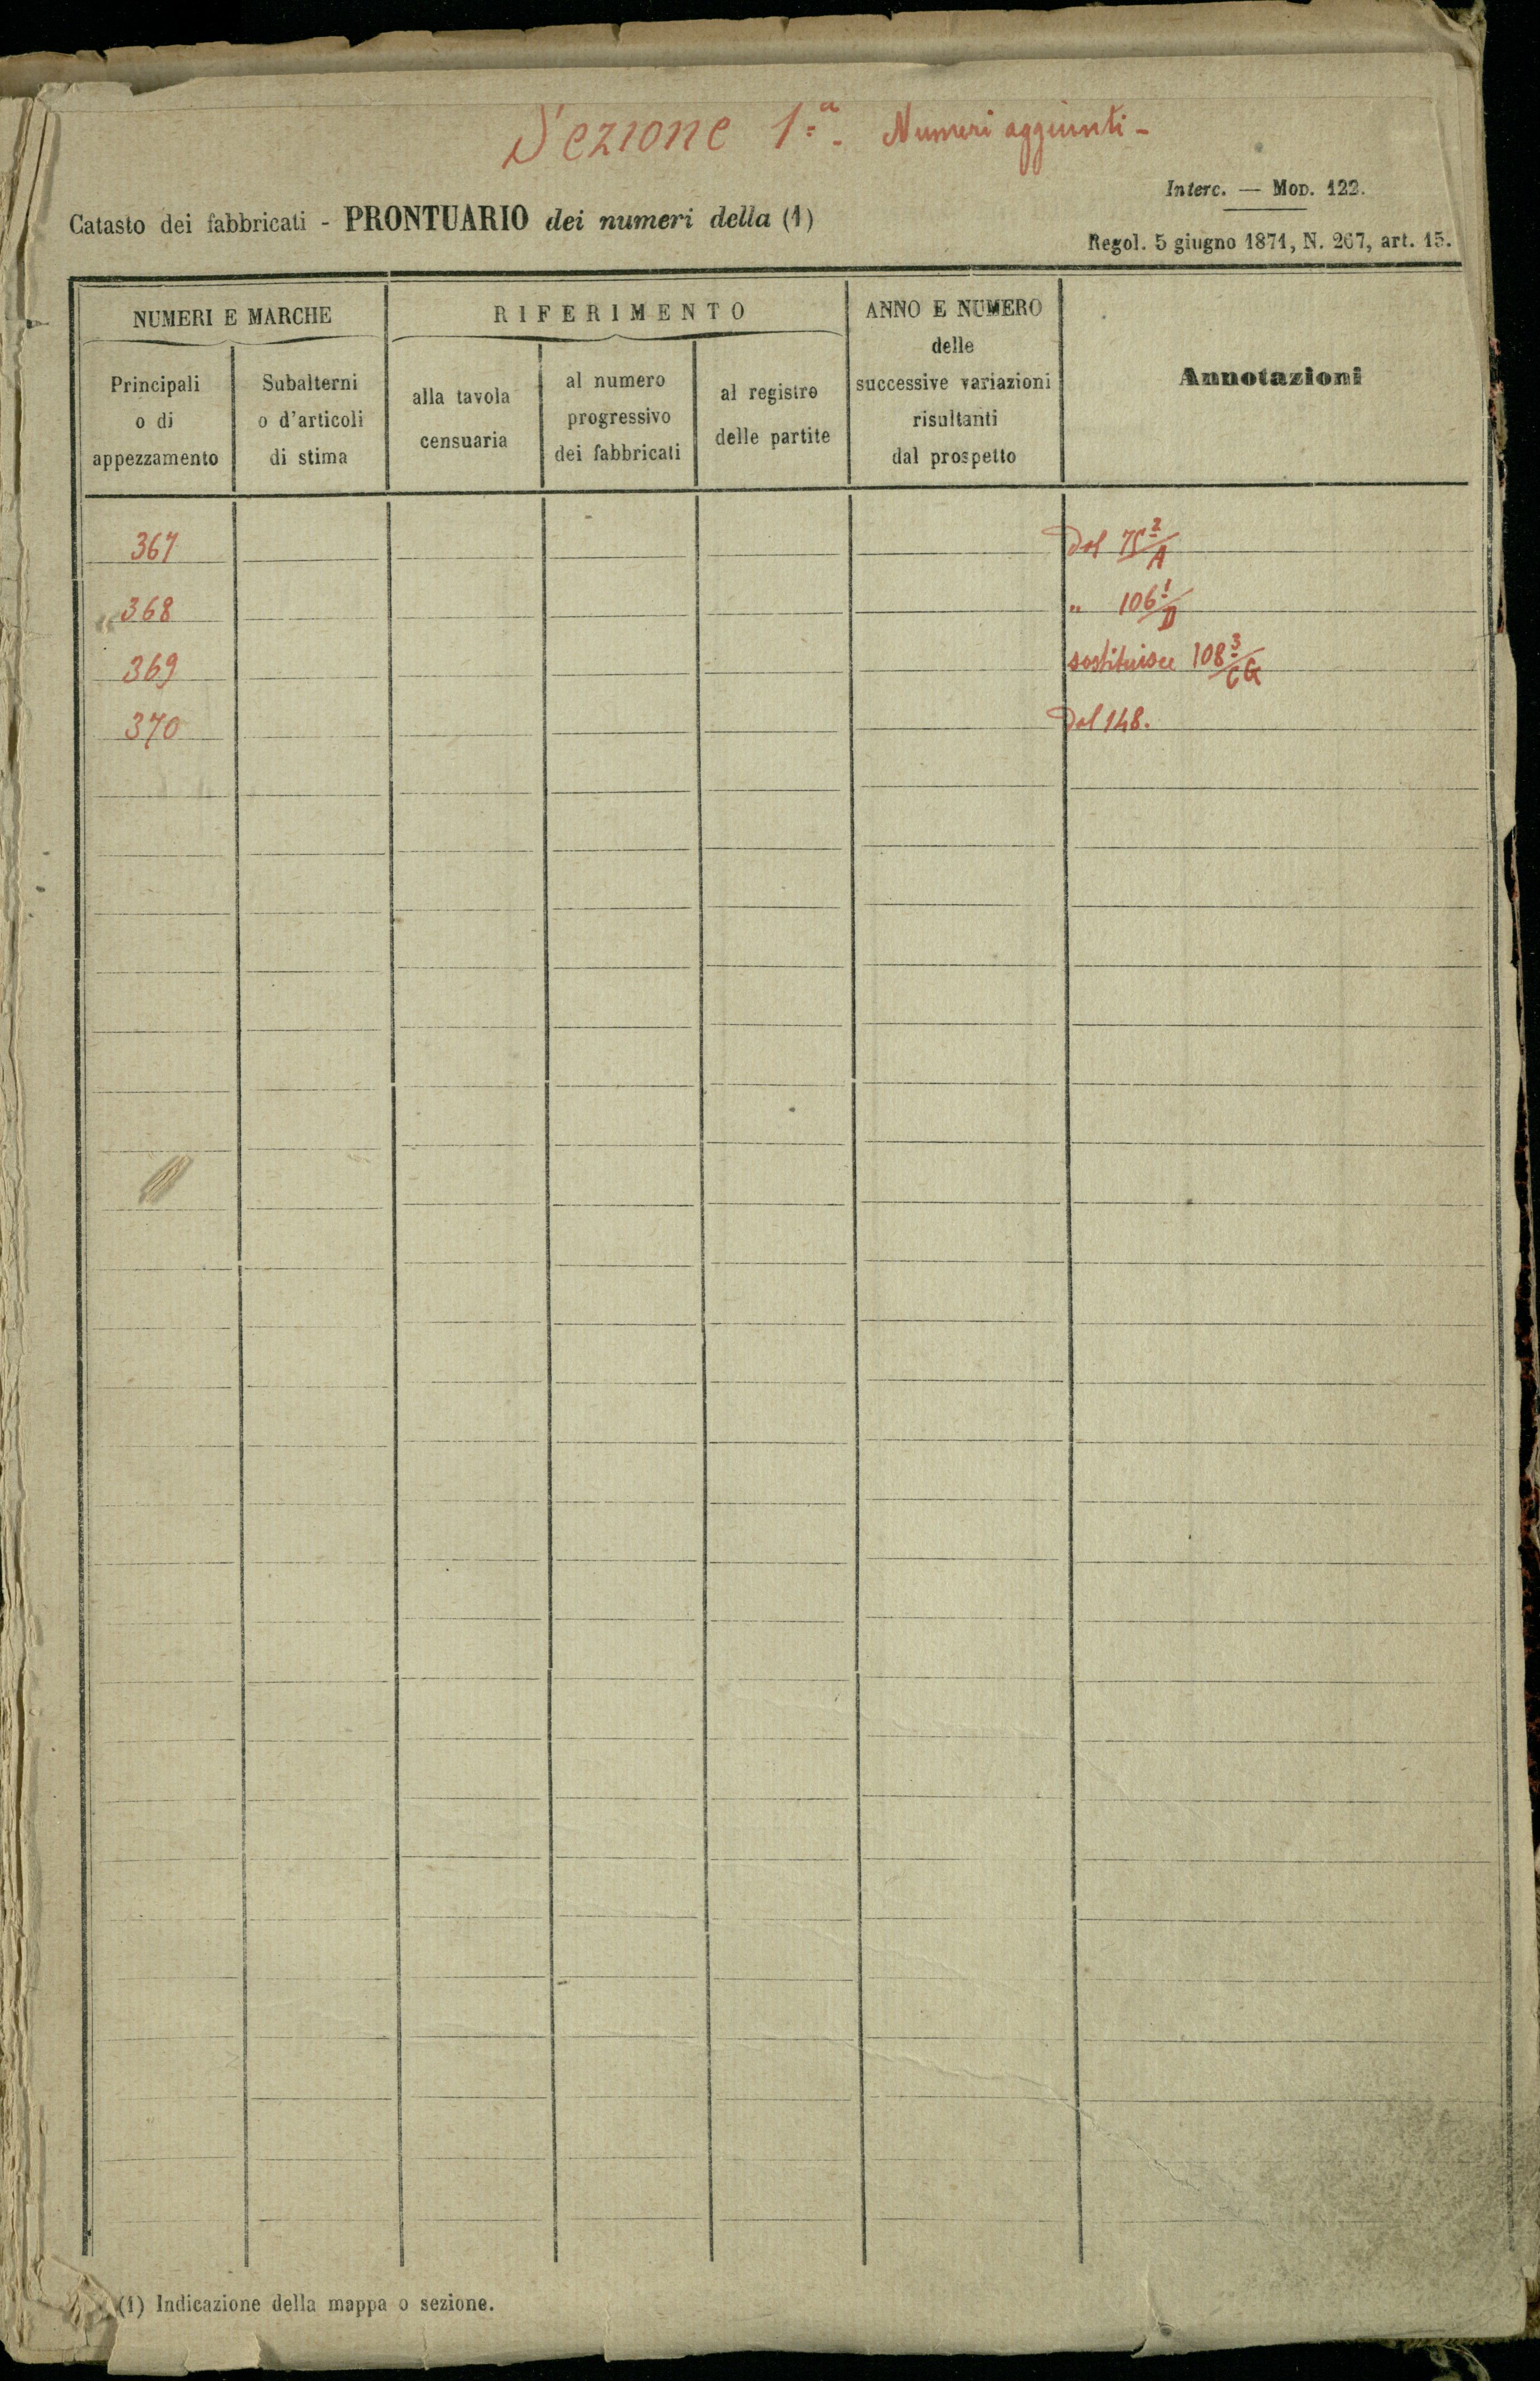 Sezione 1.ª Numeri aggiunti -
Interc. — Mod. 122.
Catasto dei fabbricati - PRONTUARIO dei numeri della (1)
Regol. 5 giugno 1871, N. 267, art. 15.
NUMERI E MARCHE
RIFERIMENTO
ANNO E NUMERO
delle
successive variazioni
risultanti
dal prospetto
Annotazioni
Principali
o di
appezzamento
Subalterni
o d'articoli
di stima
alla tavola
censuaria
al numero
progressivo
dei fabbricati
al registro
delle partite
367 Dal 75 2/A
368 " 106 1/D
369 sostituisce 108 3/CG
370 Dal 148.
(1) Indicazione della mappa o sezione.